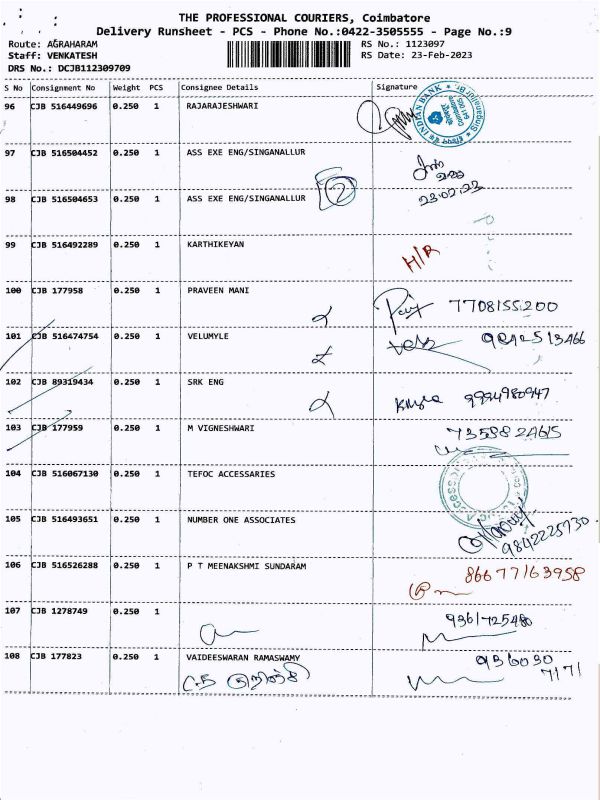 THE PROFESSIONAL COURIERS, Coimbatore
Delivery Runsheet - PCS - Phone No.:0422-3505555 - Page No.:9
Route: AGRAHARAM RS No.: 1123097
Staff: VENKATESH RS Date: 23-Feb-2023
DRS No.: DCJB112309709
S No Consignment No Weight PCS Consignee Details Signature
96 CJB 516449696 0.250 1 RAJARAJESHWARI
INDIAN BANK
97 CJB 516504452 0.250 1 ASS EXE ENG/SINGANALLUR
2
98 CJB 516504653 0.250 1 ASS EXE ENG/SINGANALLUR 23.02.23
99 CJB 516492289 0.250 1 KARTHIKEYAN H/R
100 CJB 177958 0.250 1 PRAVEEN MANI 7708155200
101 CJB 516474754 0.250 1 VELUMYLE
102 CJB 89319434 0.250 1 SRK ENG 9994980947
103 CJB 177959 0.250 1 M VIGNESHWARI
104 CJB 516067130 0.250 1 TEFOC ACCESSARIES
105 CJB 516493651 0.250 1 NUMBER ONE ASSOCIATES 9842225730
106 CJB 516526288 0.250 1 P T MEENAKSHMI SUNDARAM
107 CJB 1278749 0.250 1 9361725480
108 CJB 177823 0.250 1 VAIDEESWARAN RAMASWAMY 936030
7171